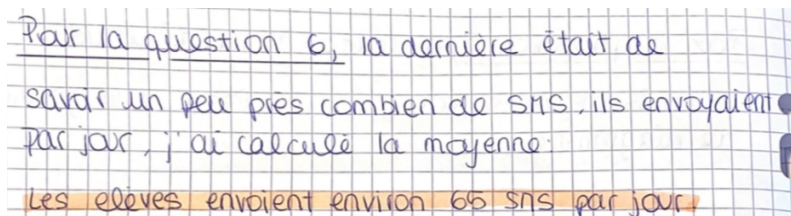 Pour la question 6, la dernière était de
savoir un peu près combien de SMS, ils envoyaient
par jour, j'ai calculé la moyenne:
Les élèves envoient environ 65 sms par jour.